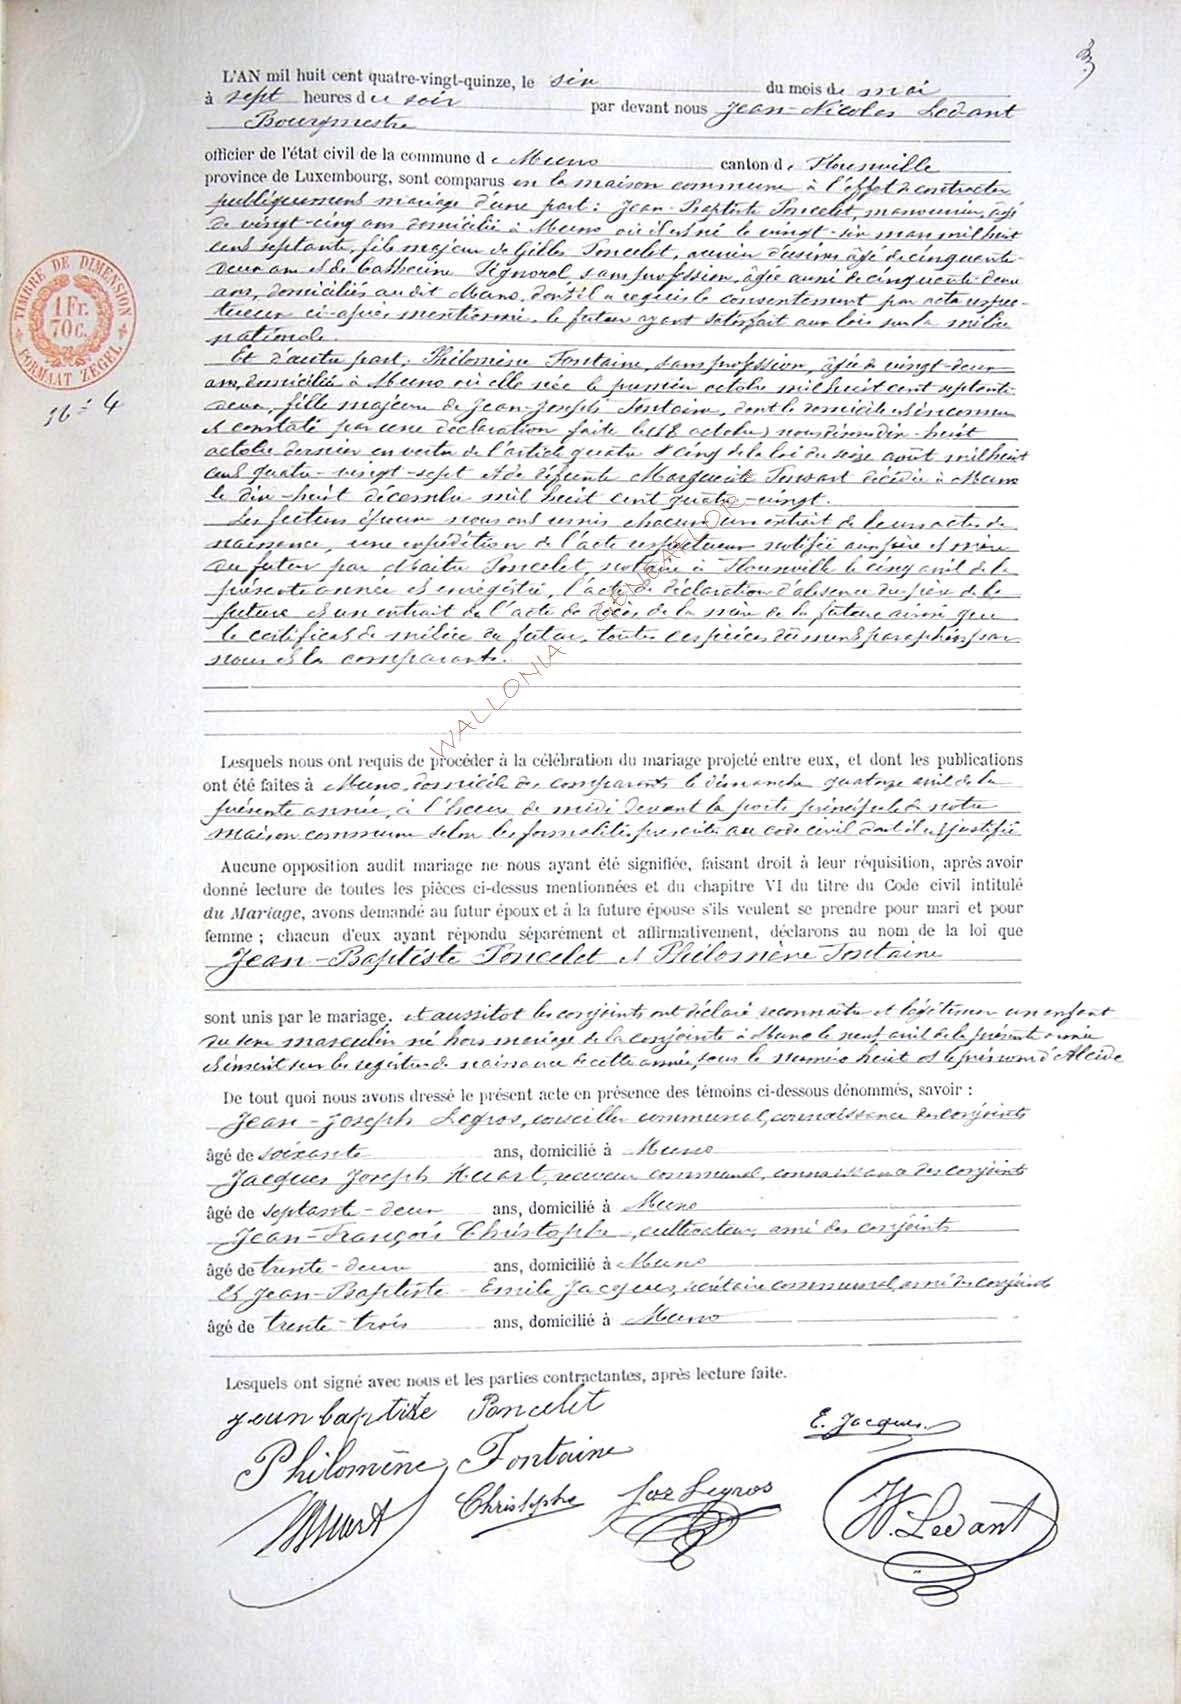 3
L'AN mil huit cent quatre-vingt-quinze, le six du mois de mai
à sept heures du soir par devant nous Jean-Nicolas Ledant
Bourgmestre
officier de l'état civil de la commune de Muno canton de Florenville
province de Luxembourg, sont comparus en la maison commune à l'effet de contracter
publiquement mariage d'une part : Jean-Baptiste Poncelet, manouvrier, âgé
de vingt-cinq ans domicilié à Muno où il est né le vingt-six mars mil huit
cent septante, fils majeur de Gilles Poncelet, ouvrier d'usines âgé de cinquante-
deux ans et de Catherine Pignorel sans profession, âgée aussi de cinquante-deux
ans, domiciliés audit Muno, dont il a requis le consentement par acte respec-
tueux ci-après mentionné, le futur ayant satisfait aux lois sur la milice
nationale.
Et d'autre part, Philomène Fontaine, sans profession, âgée de vingt-deux
ans, domiciliée à Muno où elle née le premier octobre mil huit cent septante-
deux, fille majeure de Jean-Joseph Fontaine, dont le domicile est inconnu
et constaté par une déclaration faite le (18 octobre) nous disons dix-huit
octobre dernier en vertu de l'article quatre & cinq de la loi du seize août mil huit
cent quatre-vingt-sept et de défunte Marguerite décédée à Muno
le dix-huit décembre mil huit cent quatre-vingt.
Les futurs époux nous ont remis chacun un extrait de leurs actes de
naissance, une expédition de l'acte respectueux notifié aux père et mère
du futur par Maître Poncelet, notaire à Florenville le cinq avril de la
présente année et enregistré, l'acte de déclaration d'absence du père de la
future et un extrait de l'acte de décès de la mère de la future ainsi que
le certificat de milice du futur, toutes ces pièces dûment paraphées par
nous et les comparants.
Lesquels nous ont requis de procéder à la célébration du mariage projeté entre eux, et dont les publications
ont été faites à Muno, domicile des comparants le dimanche quatorze avril de la
présente année, à l'heure de midi devant la porte principale de notre
maison commune selon les formalités prescrites au code civil dont il est justifié
Aucune opposition audit mariage ne nous ayant été signifiée, faisant droit à leur réquisition, après avoir
donné lecture de toutes les pièces ci-dessus mentionnées et du chapitre VI du titre du Code civil intitulé
du Mariage, avons demandé au futur époux et à la future épouse s'ils veulent se prendre pour mari et pour
femme ; chacun d'eux ayant répondu séparément et affirmativement, déclarons au nom de la loi que
Jean-Baptiste Poncelet et Philomène Fontaine
sont unis par le mariage. et aussitôt les conjoints ont déclaré reconnaître et légitimer un enfant
du sexe masculin né hors mariage de la conjointe à Muno le neuf avril de la présente année
et inscrit sur les registres de naissance de cette année, sous le numéro huit et le prénom d'Alcide
De tout quoi nous avons dressé le présent acte en présence des témoins ci-dessous dénommés, savoir :
Jean-Joseph Legros, conseiller communal, connaissance des conjoints
âgé de soixante ans, domicilié à Muno
Jacques Joseph Huart, receveur communal, connaissance des conjoints
âgé de septante-deux ans, domicilié à Muno
Jean-François Christophe, cultivateur, ami des conjoints
âgé de trente-deux ans, domicilié à Muno
Et Jean-Baptiste-Emile Jacques, secrétaire communal, ami des conjoints
âgé de trente-trois ans, domicilié à Muno
Lesquels ont signé avec nous et les parties contractantes, après lecture faite.
jean baptiste Poncelet
E. Jacques.
Philomène Fontaine
Huart Christophe Jos Legros
N. Ledant
TIMBRE DE DIMENSION
1 Fr.
70 c.
FORMAAT ZEGEL
WALLONIA GENEAFLOR